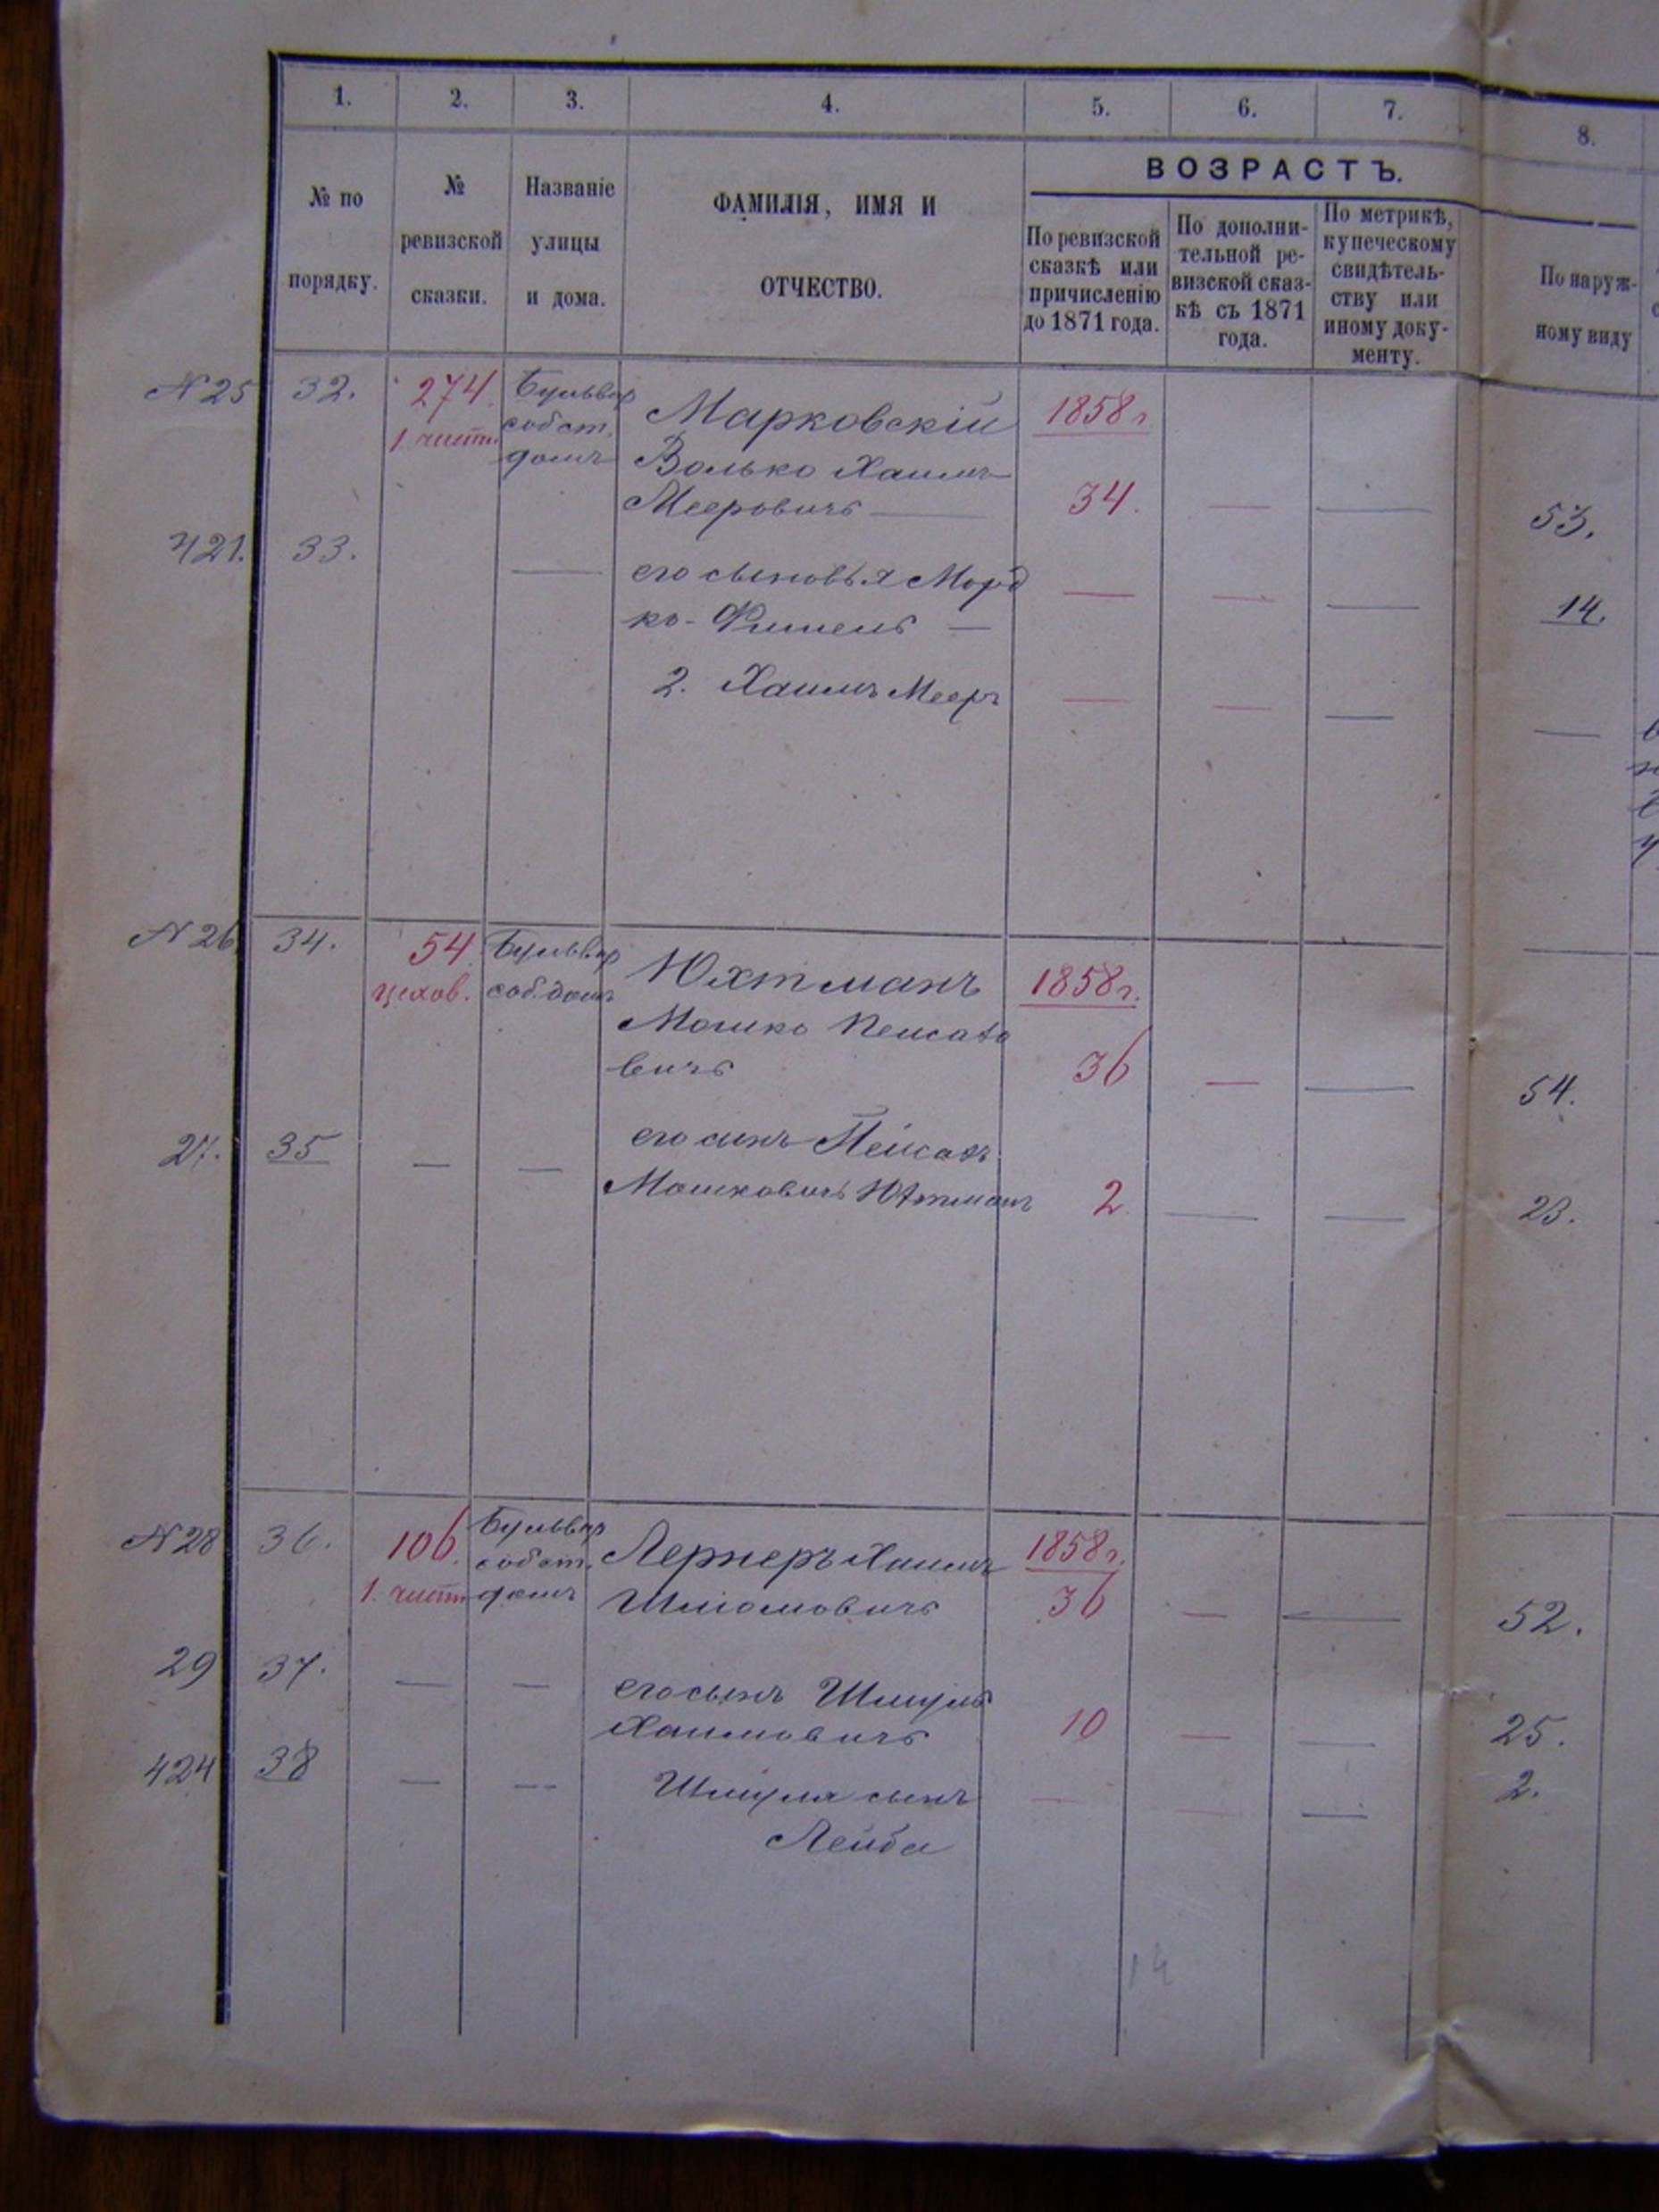 1. 2. 3. 4. 5. 6. 7. 8.
ВОЗРАСТЪ.
№ по
порядку.
№
ревизской
сказки.
Названіе
улицы
и дома.
ФАМИЛІЯ, ИМЯ И
ОТЧЕСТВО.
По ревизской
сказкѣ или
причисленію
до 1871 года.
По дополни-
тельной ре-
визской сказ-
кѣ съ 1871
года.
По метрикѣ,
купеческому
свидѣтель-
ству или
иному доку-
менту.
По наруж-
ному виду
N 25 32. 274. Бульвар Марковскій 1858 г
1. числ. собст.
домъ Волько Хаимъ
Мееровичъ — 34. — — 53.
421. 33. — его сыновья Морд
ко-Фишель — — — — 14.
2. Хаимъ Мееръ — — — —
N 26 34. 54 Бульвар Юхтманъ 1858 г.
цехов. соб. домъ
Мошко Пейсахо
вичъ 36 — — 54.
27. 35 — — его сынъ Пейсахъ
Мошковичъ Юхтманъ 2. — — 23.
N 28 36. 106. Бульвар Лернеръ Хаимъ 1858 г.
собст.
1. числ домъ Шліомовичъ 36 — — 52.
29 37. — — его сынъ Шмуль
Хаимовичъ 10 — — 25.
424 38 — — Шмуля сынъ — — — 2.
Лейба
14